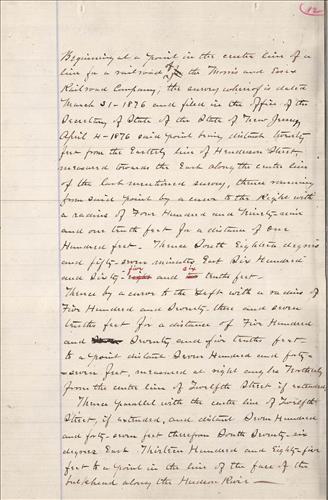 12
Beginning at a point in the centre line of a
line for a railroad of the Morris and Essex
Railroad Company, the survey whereof is dated
March 31-1876 and filed in the office of the
Secretary of State of the State of New Jersey
April 4-1876 said point being distant twenty
feet from the Easterly line of Henderson Street
measured towards the East along the center line
of the last mentioned survey, thence running
from said point by a curve to the Right with
a radius of Four Hundred and Ninety-nine
and one tenth feet for a distance of one
Hundred feet. Thence South Eighteen degrees
and fifty-seven minutes East Six Hundred
five six
and Sixty-eight and tenths feet.
Thence by a curve to the Left with a radius of
Five Hundred and Seventy three and seven
tenths feet for a distance of Five Hundred
and Seventy and five tenths feet
to a point distant Seven Hundred and forty-
-seven feet, measured at right angles Northerly
from the centre line of Twelfth Street if extended
Thence parallel with the centre line of Twelfth
Street, if extended, and distant Seven Hundred
and forty-seven feet therefrom South Seventy-six
degrees East Thirteen Hundred and Eighty-five
feet to a point in the line of the face of the
bulkhead along the Hudson River-